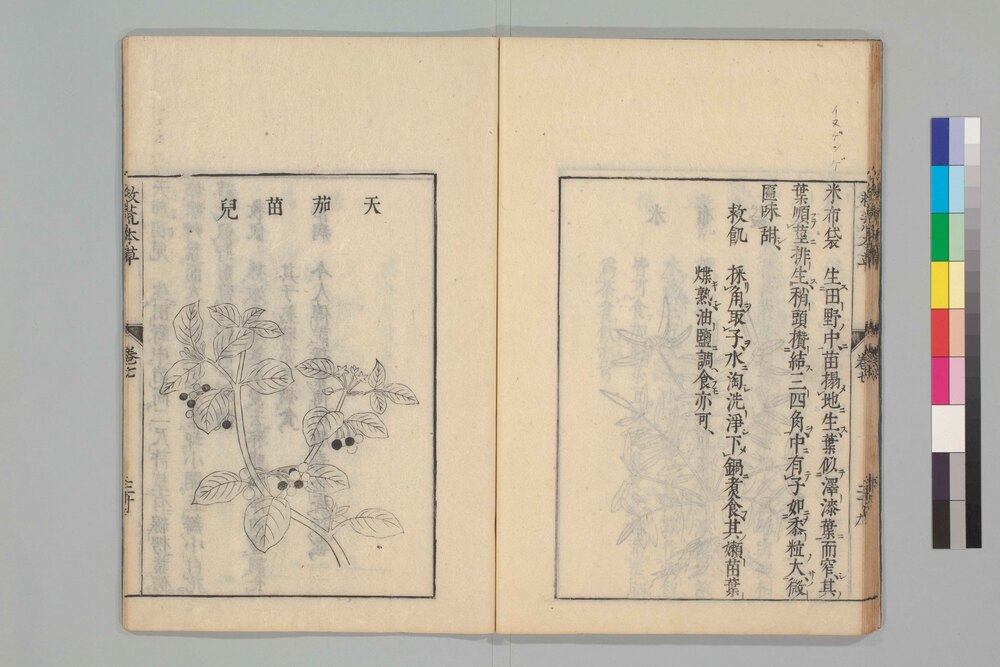 イヌゲンゲ
米布袋 生田野中苗搨地生葉似澤漆葉而窄其
葉順莖排生稍頭攅結三四角中有子如黍粒大微
匾味甜
救飢 採角取子水淘洗淨下鍋煮食其嫩苗葉
煠熟油鹽調食亦可
天茄苗兒
救荒本草
卷七